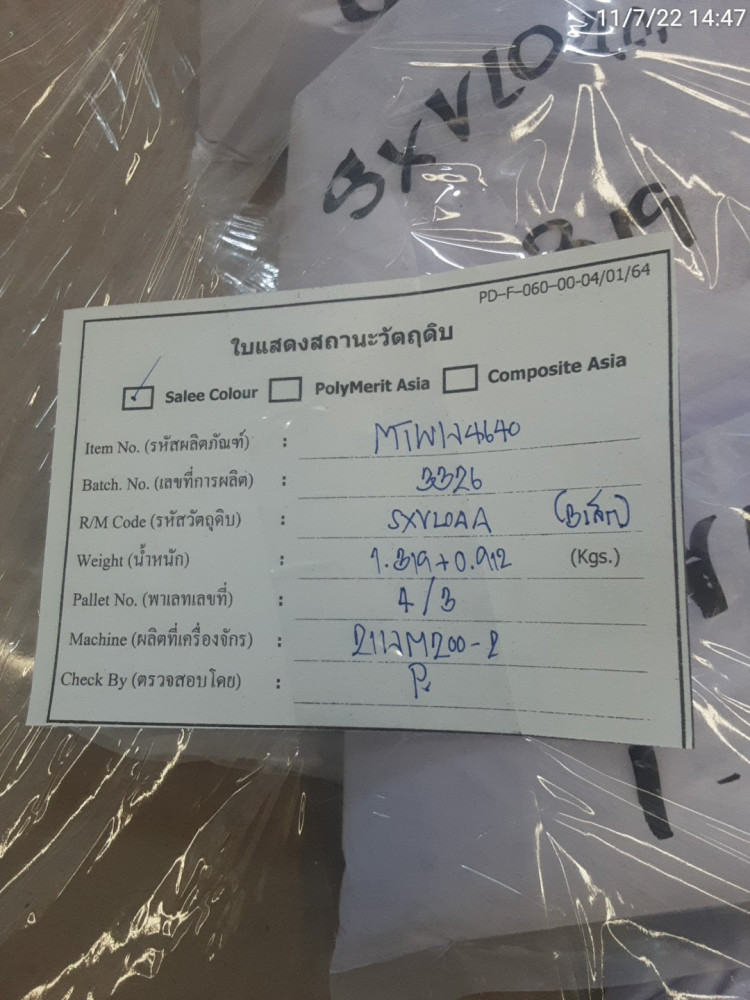 11/7/22 14:47
SXVLOAA
819
PD-F-060-00-04/01/64
ใบแสดงสถานะวัตถุดิบ
Salee Colour PolyMerit Asia Composite Asia
Item No. (รหัสผลิตภัณฑ์) :
Batch. No. (เลขที่การผลิต) : 3326
R/M Code (รหัสวัตถุดิบ) : SXVLOAA
Weight (น้ำหนัก) : 1.319+0.912 (Kgs.)
Pallet No. (พาเลทเลขที่) : 4/3
Machine (ผลิตที่เครื่องจักร) :
Check By (ตรวจสอบโดย) :